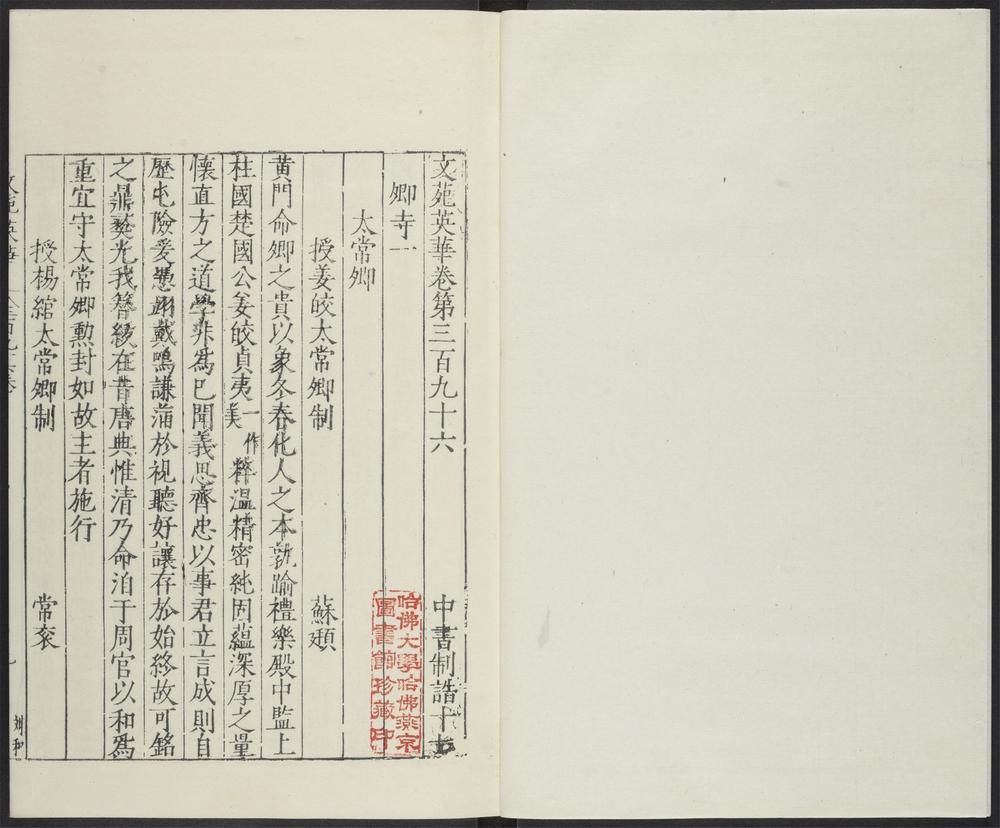 文苑英華卷第三百九十六
中書制誥十七
卿寺一
太常卿
授姜皎太常卿制 蘇頲
黃門命卿之貴以象冬春化人之本孰踰禮樂殿中監上
柱國楚國公姜皎貞夷一作美粹溫精密純固蘊深厚之量
懷直方之道學非爲已聞義思齊忠以事君立言成則自
歷屯險爰憑翊戴鳴謙蒲於視聽好讓存於始終故可銘
之鼎彝光我簪紱在昔唐典惟清乃命洎于周官以和爲
重宜守太常卿勲封如故主者施行
授楊綰太常卿制 常袞
哈佛大學哈佛燕京
圖書館珍藏印